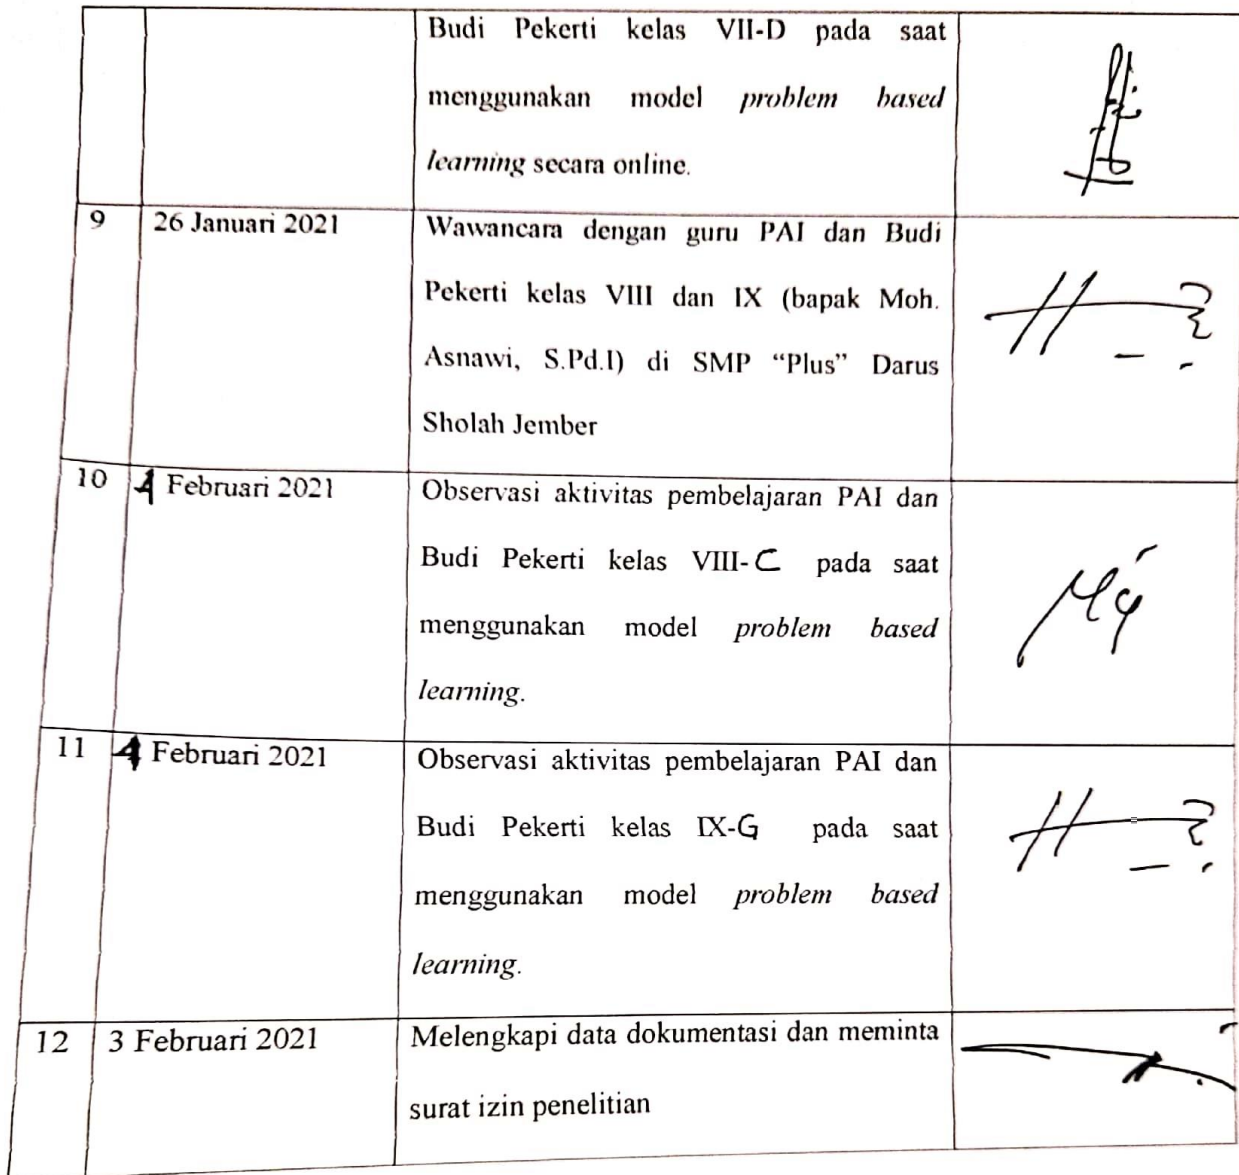 Budi Pekerti kelas VII-D pada saat
menggunakan model problem based
learning secara online.
9 26 Januari 2021 Wawancara dengan guru PAI dan Budi
Pekerti kelas VIII dan IX (bapak Moh.
Asnawi, S.Pd.I) di SMP “Plus” Darus
Sholah Jember
10 Februari 2021 Observasi aktivitas pembelajaran PAI dan
Budi Pekerti kelas VIII-C pada saat
menggunakan model problem based
learning.
11 Februari 2021 Observasi aktivitas pembelajaran PAI dan
Budi Pekerti kelas IX-G pada saat
menggunakan model problem based
learning.
12 3 Februari 2021 Melengkapi data dokumentasi dan meminta
surat izin penelitian